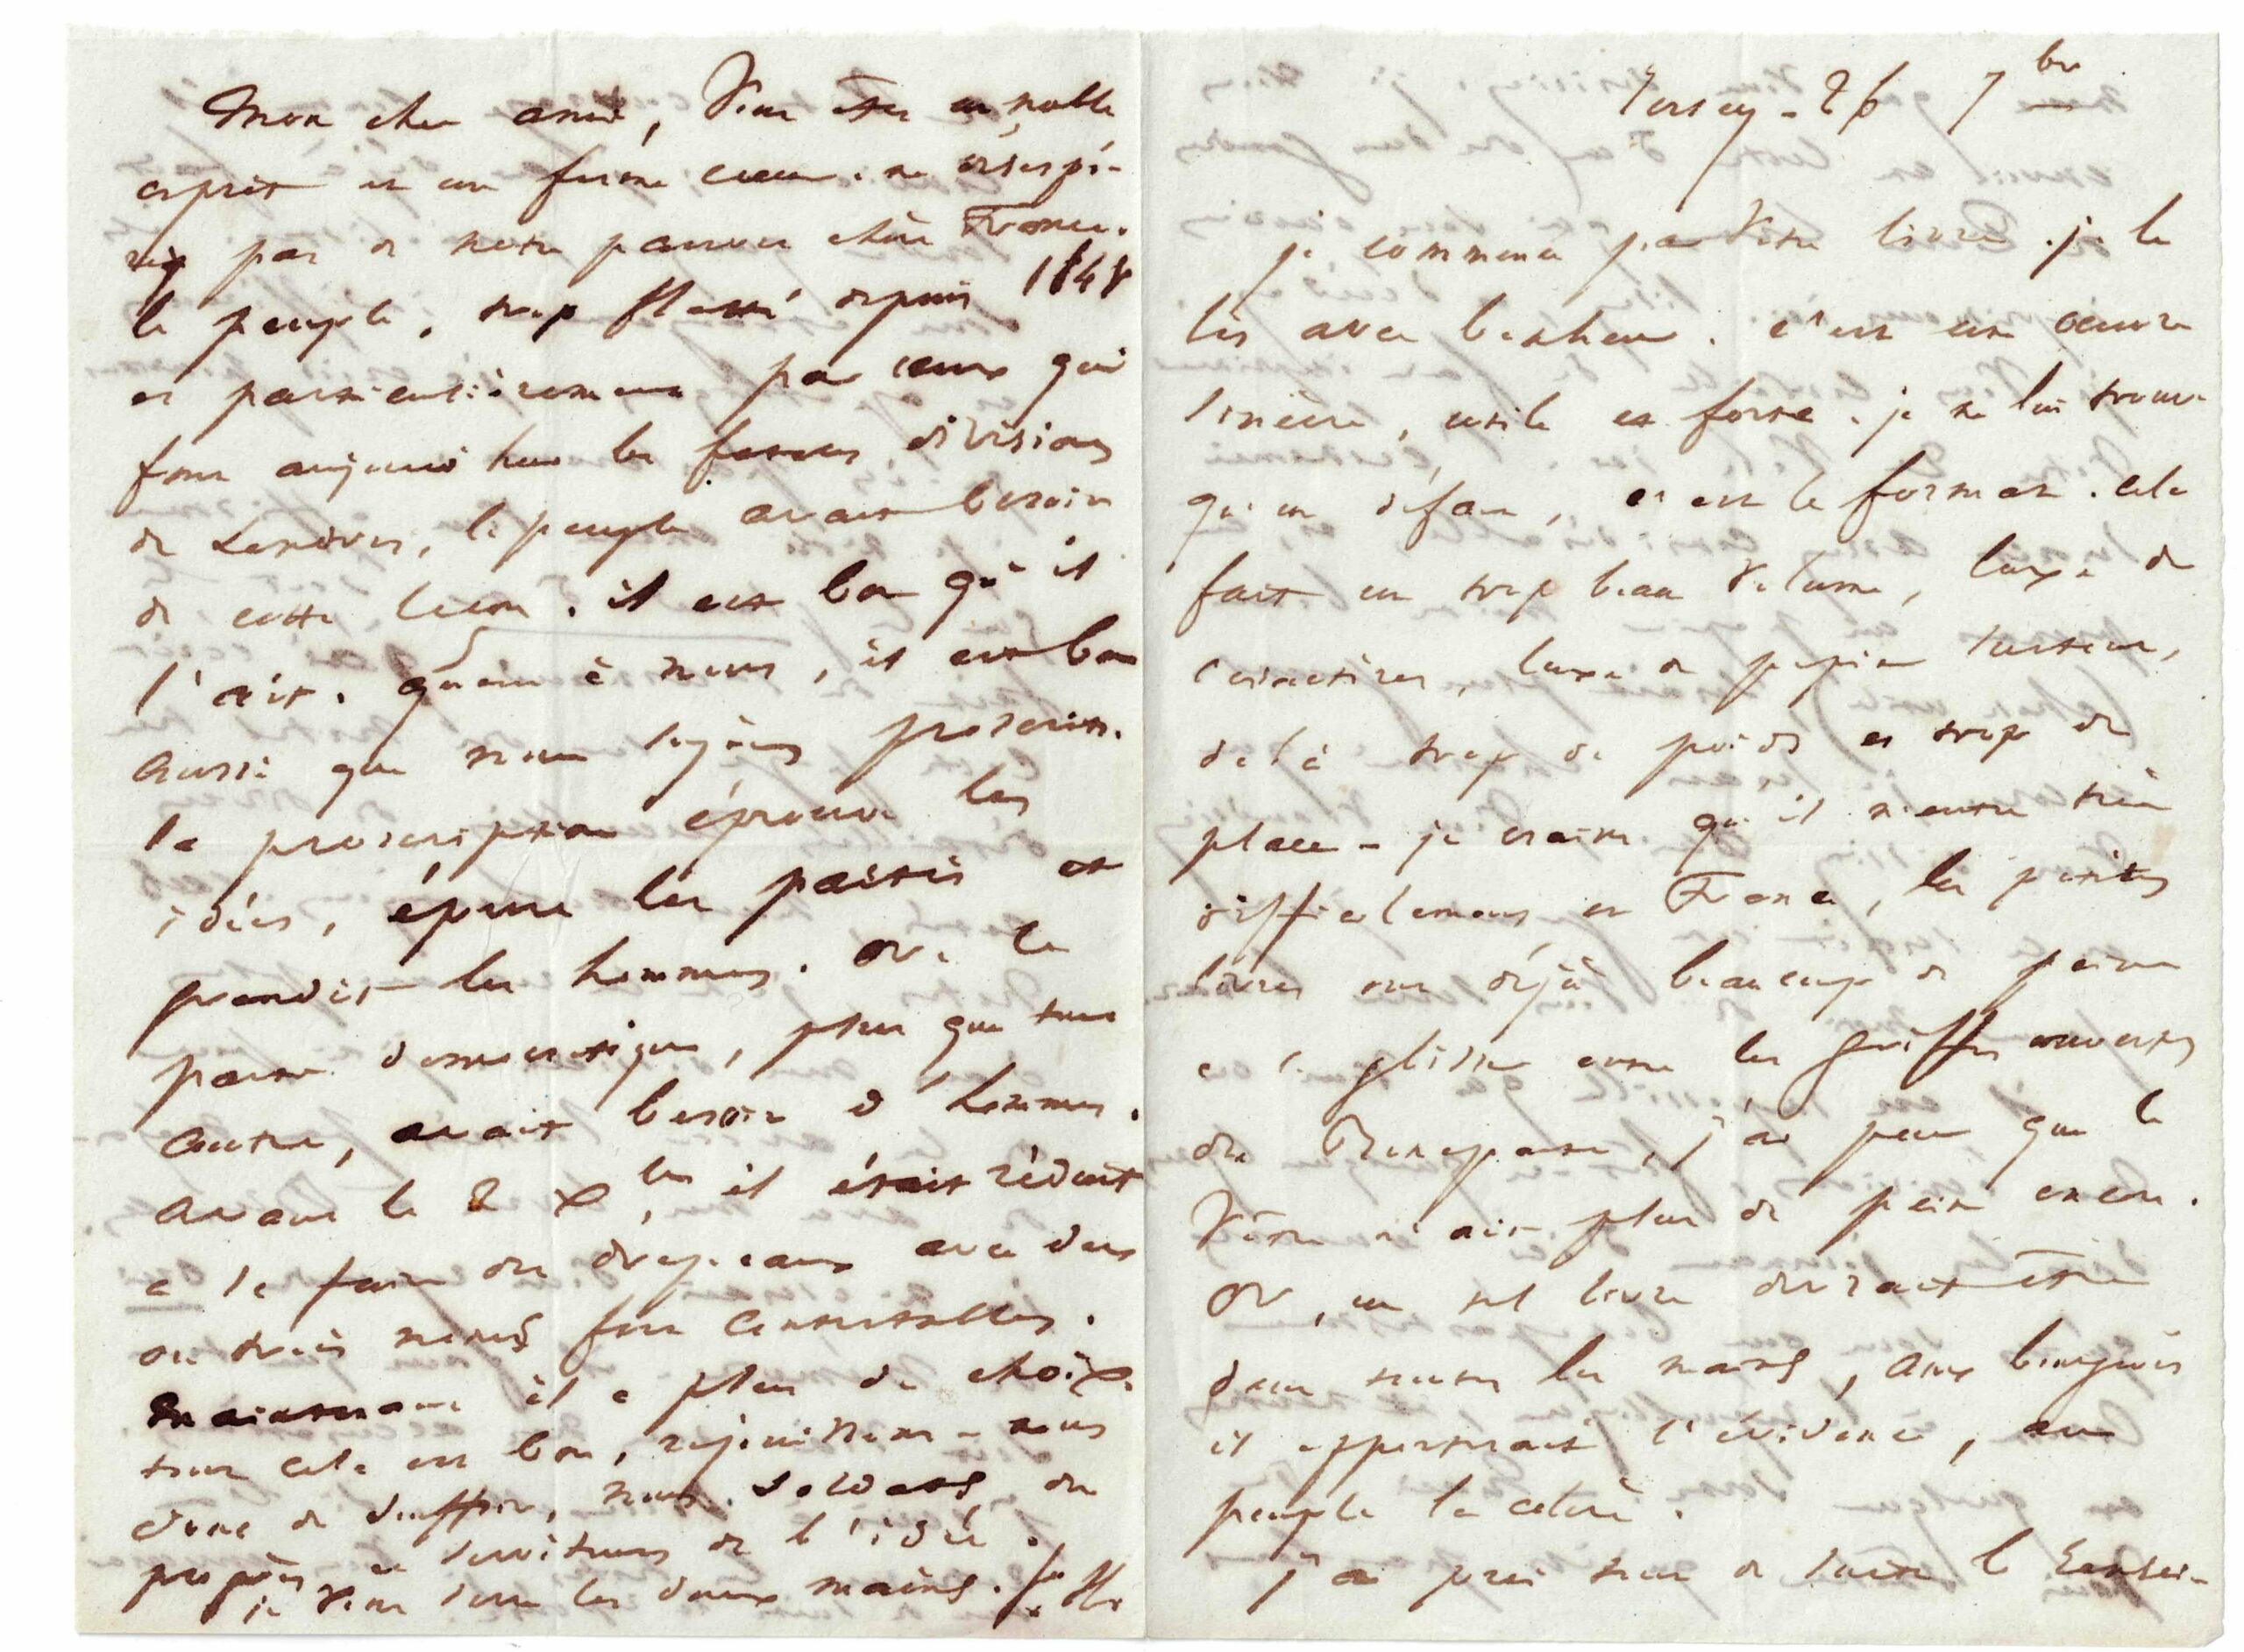 Mon cher ami, vous êtes un noble
esprit et un ferme cœur. ne désespé-
rez pas de notre pauvre chère France.
le peuple, trop flatté depuis 1848
et particulièrement par ceux qui
font aujourd'hui les fausses divisions
de Londres, le peuple avait besoin
de cette leçon. il est bon qu'il
l'ait. quant à nous, il est bon
aussi que nous soyons proscrits.
la proscription éprouve les
idées, épure les partis et
grandit les hommes. or, le
parti démocratique, plus que tout
autre, avait besoin d'hommes.
avant le 2 Xbre, il était réduit
à se faire des drapeaux avec deux
ou trois noms fort contestables.
maintenant il a plus de choix.
tout cela est bon, réjouissons-nous
donc de souffrir, nous soldats du
progrès et serviteurs de l'idée.
je vous serre les deux mains.
Jersey - 26 7bre
je commence par votre livre. je le
lis avec bonheur. c'est une œuvre
sincère, utile et forte. je ne lui trouve
qu'un défaut, c'est le format. cela
fait un trop beau volume, luxe de
caractères, luxe de papier surtout,
de là trop de poids et trop de
place - je crains qu'il n'entre très
difficilement en France, les petits
livres ont déjà beaucoup de peine
à se glisser entre les griffes ouvertes
du Bonaparte, j'ai peur que le
vôtre n'ait plus de peine encore.
Or, un tel livre devrait être
dans toutes les mains, aux bourgeois
il apporterait l'évidence, au
peuple la colère.
j'ai pris tout de suite le rensei-